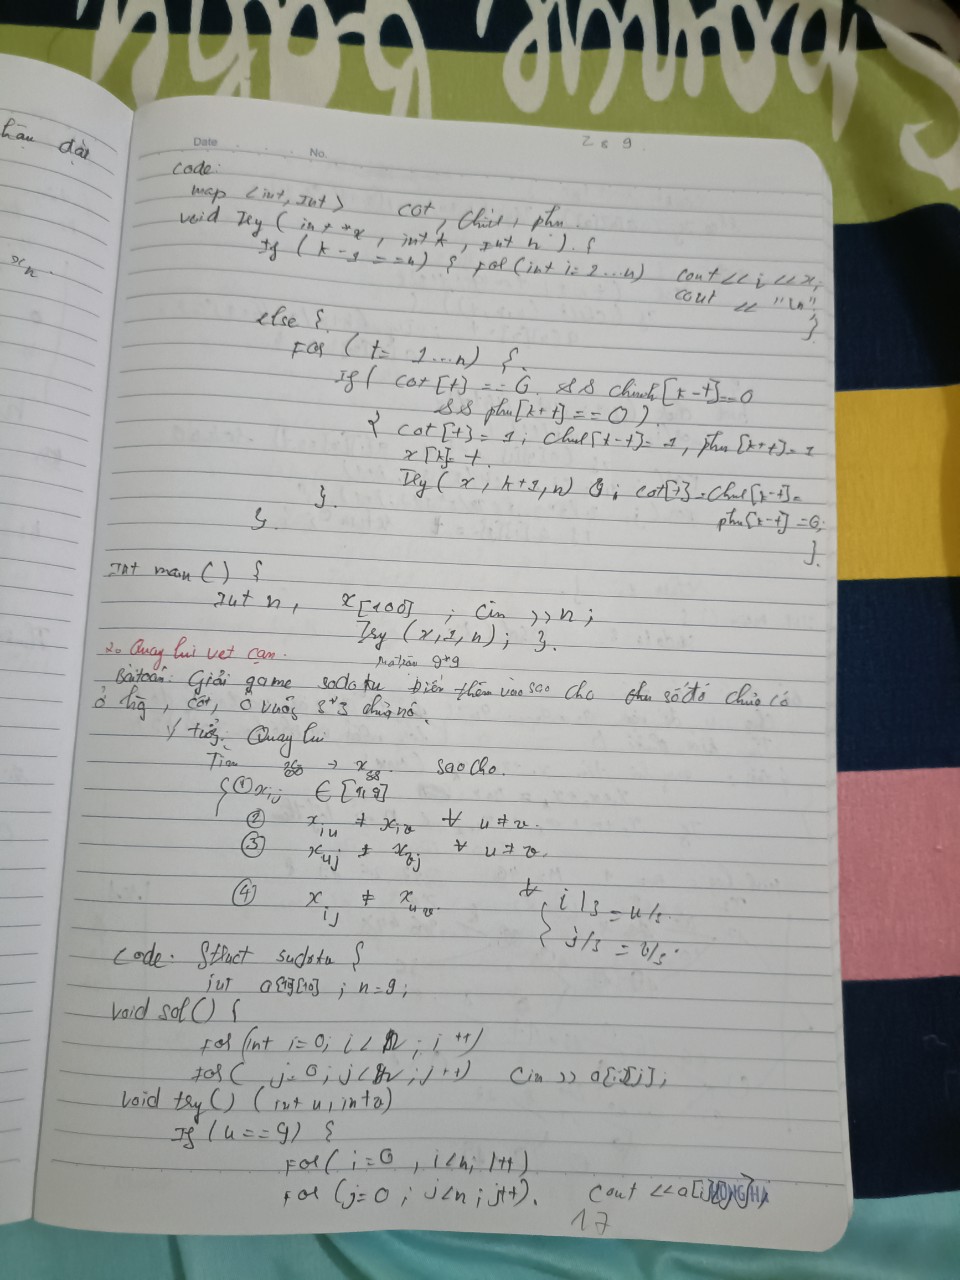 hậu đài
xn.
Date No. 2 6 9
code:
map <int, Int> cot, chinh, phu
void Try (int *x, int k, Int n) {
If (k-1 == n) { For (int i=1...n) cout << i << x;
cout << "\n"
}
else {
For (t= 1...n) {
If ( cot[t] == 0 && chinh[k-t]==0
&& phu[k+t] == 0)
{ cot[t]= 1; chinh[k-t]= 1, phu[k+t]=1
x[k]= t
Try( x, k+1, n) ; cot[t]=chinh[k-t]=
phu[k-t] =0;
}.
}.
}.
Int main() {
Int n, x[100] ; cin >> n;
Try (x,1,n); }.
2. Quay lui vét cạn.
ma trận 9*9
Bài toán: Giải game sodoku điền thêm vào sao cho số đó chưa có
ở hàg, cột, ô vuông 3*3 chứa nó.
Ý tưởng: Quay lui
Tìm x00 → x88 sao cho.
{ ① xij ∈ [1,9]
② xiu ≠ xiv ∀ u ≠ v.
③ xuj ≠ xvj ∀ u ≠ v.
④ xij ≠ xuv ∀ { i/3 = u/3
j/3 = v/3
code: Struct sudoku {
int a[10][10] ; n=9;
void sol() {
For (int i=0; i< n ; i++)
For ( j=0; j<n ; j++) Cin >> a[i][j];
void try() (int u, int v)
If (u==9) {
For( i=0 , i<n; i++)
For (j=0 ; j<n ; j++). Cout << a[i][j]
HỒNG HÀ
17